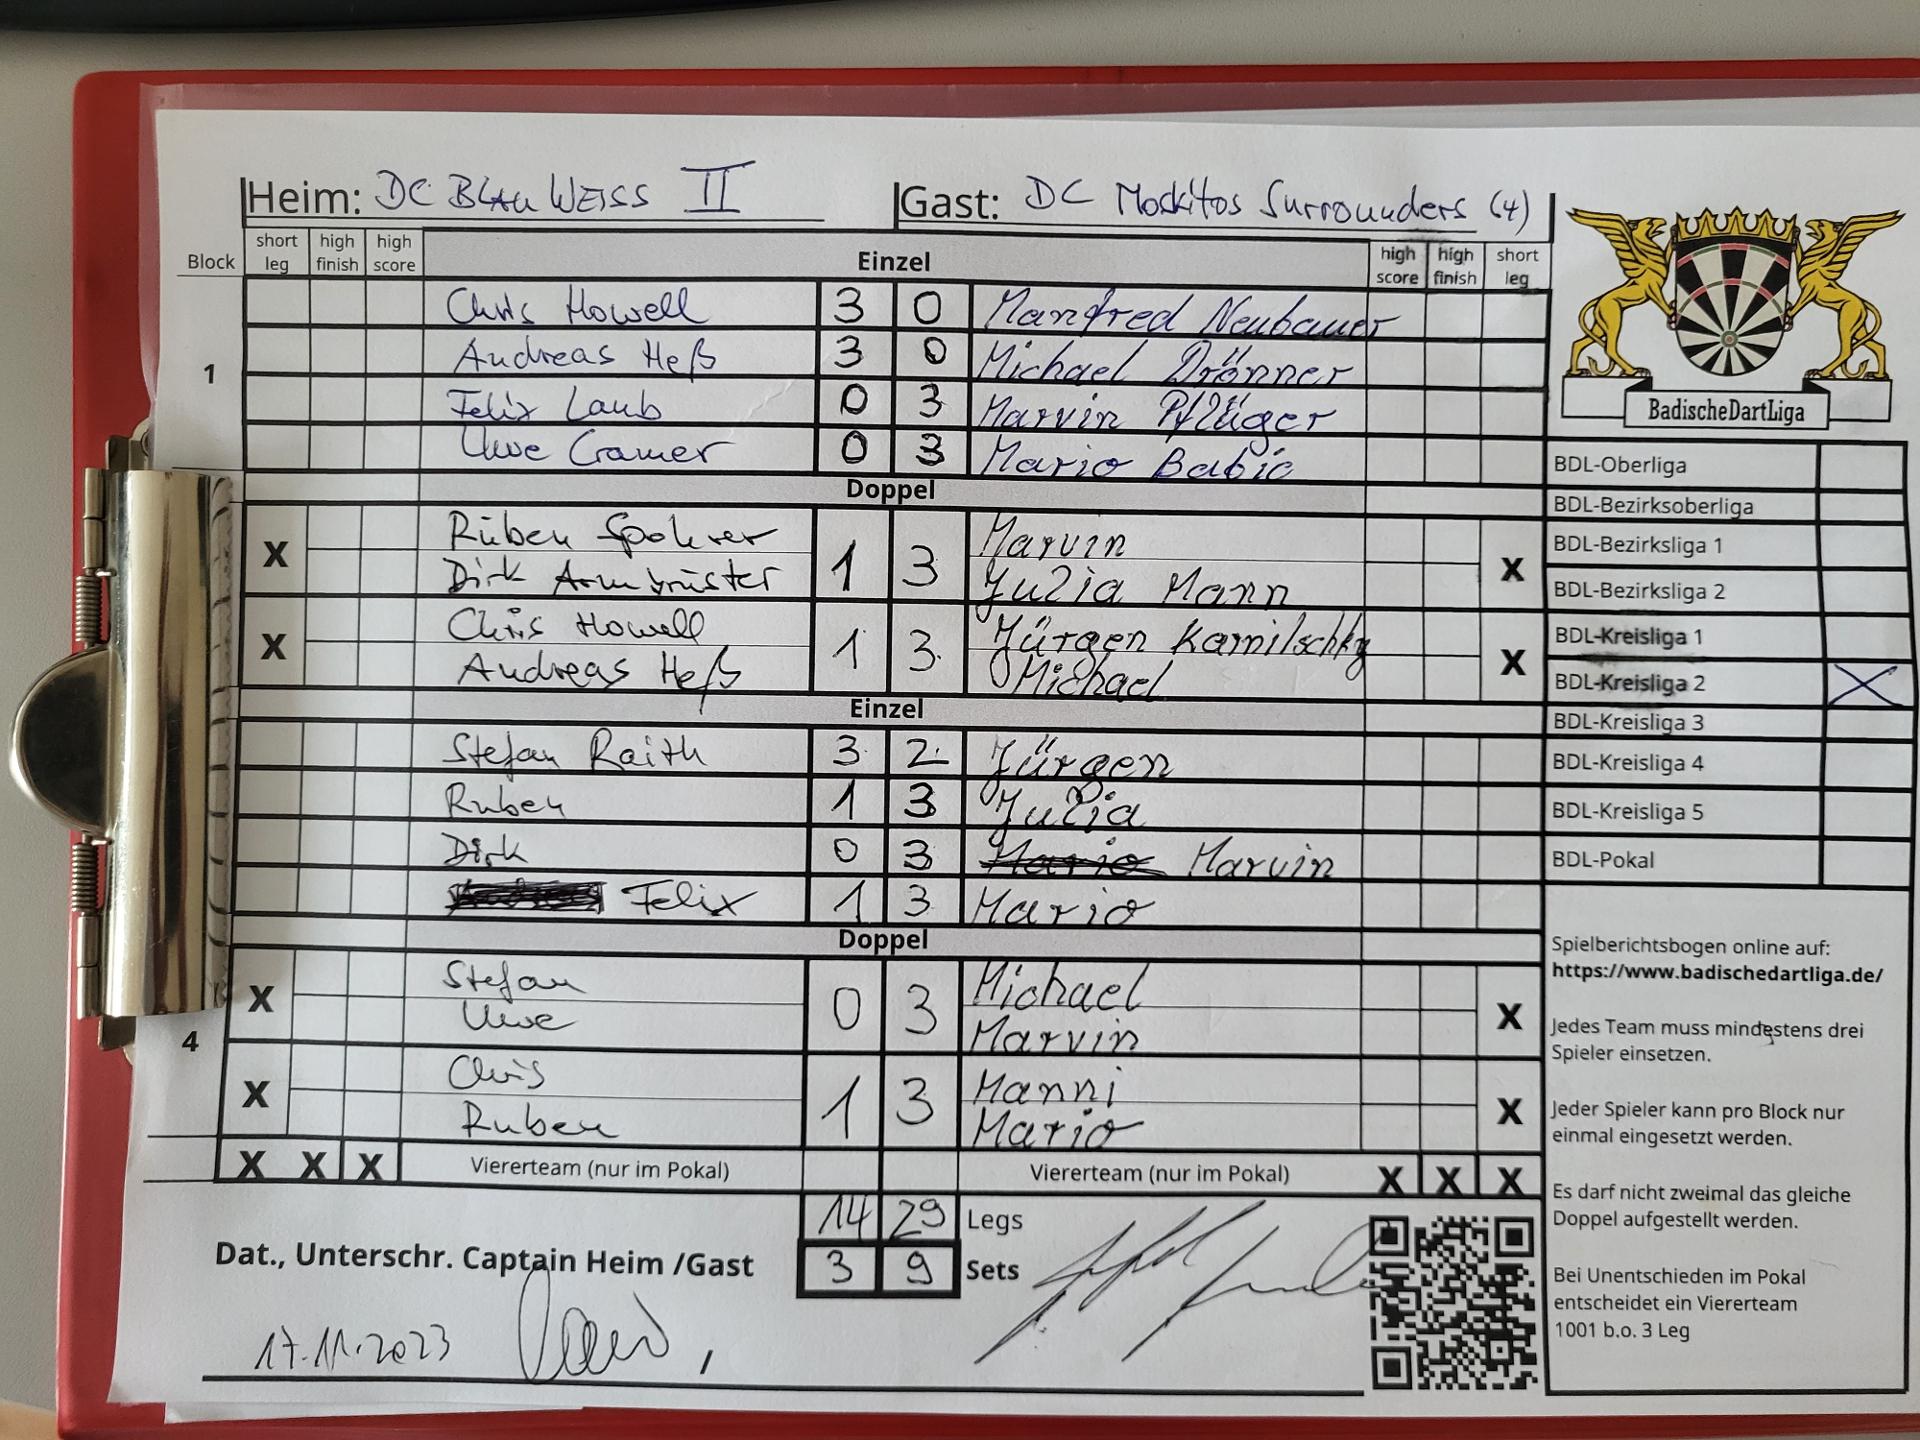 Heim: DC BLAU WEISS II Gast: DC Moskitos Surrounders (4)
Block short leg high finish high score Einzel high score high finish short leg
Chris Howell 3 0 Manfred Neubauer
Andreas Heß 3 0 Michael Drönner
1
Felix Laub 0 3 Marvin Pflüger
Uwe Cramer 0 3 Mario Babic
Doppel
X Rüben Spohrer 1 3 Marvin X
Dirk Armbrüster Julia Mann
X Chris Howell 1 3 Jürgen Karnilschky X
Andreas Heß Michael
Einzel
Stefan Raith 3 2 Jürgen
Ruben 1 3 Julia
Dirk 0 3 Mario Marvin
Felix 1 3 Mario
Doppel
X Stefan 0 3 Michael X
Uwe Marvin
4
X Chris 1 3 Manni X
Ruben Mario
X X X Viererteam (nur im Pokal) Viererteam (nur im Pokal) X X X
14 29 Legs
Dat., Unterschr. Captain Heim /Gast 3 9 Sets
17.11.2023
BadischeDartLiga
BDL-Oberliga
BDL-Bezirksoberliga
BDL-Bezirksliga 1
BDL-Bezirksliga 2
BDL-Kreisliga 1
BDL-Kreisliga 2 X
BDL-Kreisliga 3
BDL-Kreisliga 4
BDL-Kreisliga 5
BDL-Pokal
Spielberichtsbogen online auf:
https://www.badischedartliga.de/
Jedes Team muss mindestens drei
Spieler einsetzen.
Jeder Spieler kann pro Block nur
einmal eingesetzt werden.
Es darf nicht zweimal das gleiche
Doppel aufgestellt werden.
Bei Unentschieden im Pokal
entscheidet ein Viererteam
1001 b.o. 3 Leg